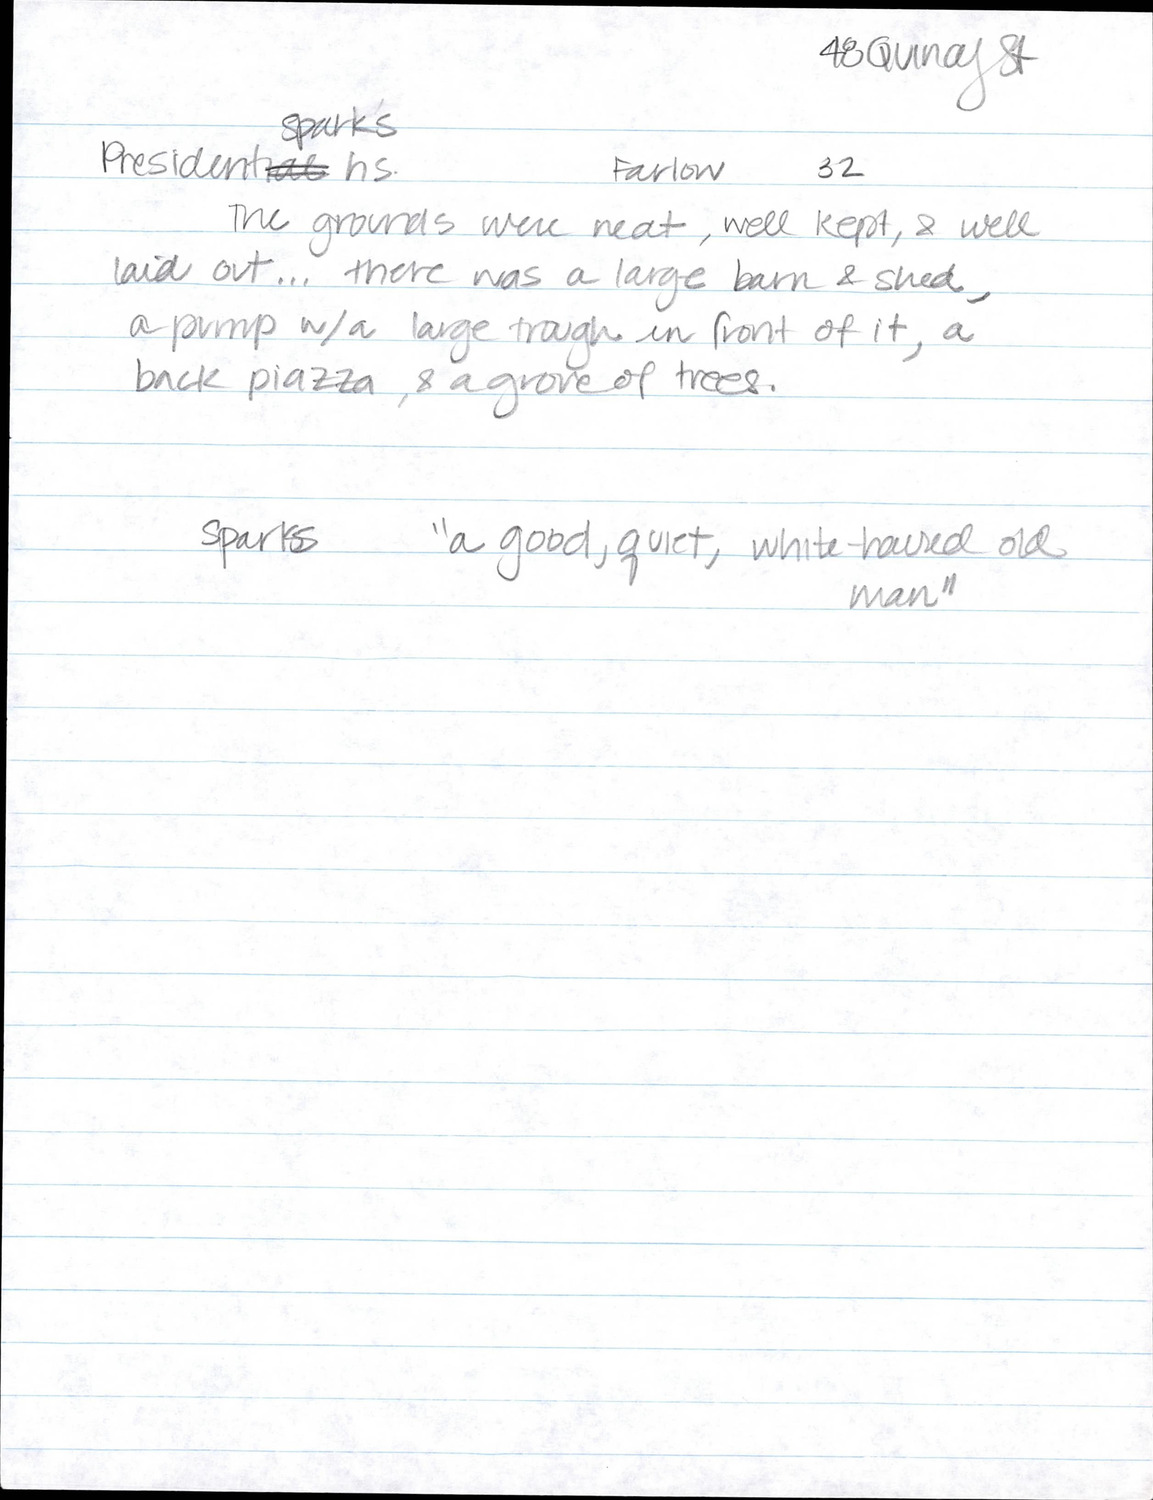 48 Quincy St
Spark's
President hs. Farlow 32
The grounds were neat, well kept, & well
laid out... there was a large barn & shed,
a pump w/a large trough in front of it, a
back piazza, & a grove of trees.
Sparks "a good, quiet, white-haired old
man"